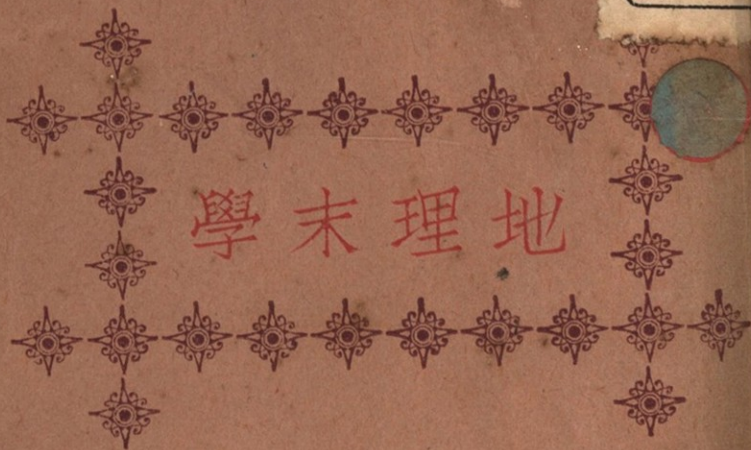 地理末學